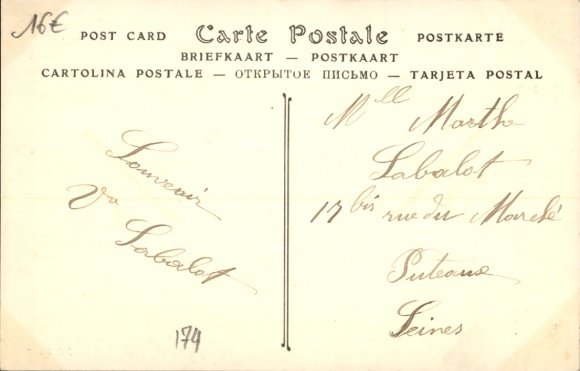 16€
POST CARD Carte Postale POSTKARTE
BRIEFKAART — POSTKAART
CARTOLINA POSTALE — ОТКРЫТОЕ ПИСЬМО — TARJETA POSTAL
Souvenir
Labalot
174
Mll Marthe
Labalot
17 bis rue du Marché
Puteaux
Seines